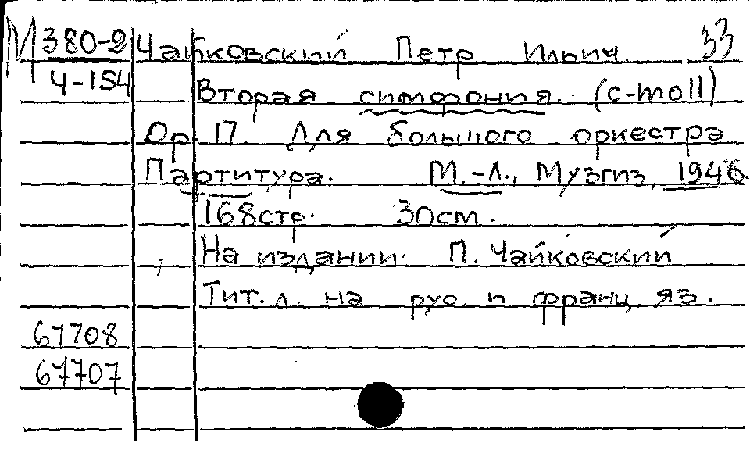 М 380-2 Чайковский Петр Ильич 33
Ч-154 Вторая симфония. (c-moll)
Op. 17. Для большого оркестра
Партитура. М.-Л., Музгиз, 1946
168 стр. 30 см.
На издании: П. Чайковский
Тит. л. на рус. и франц. яз.
67708
67707